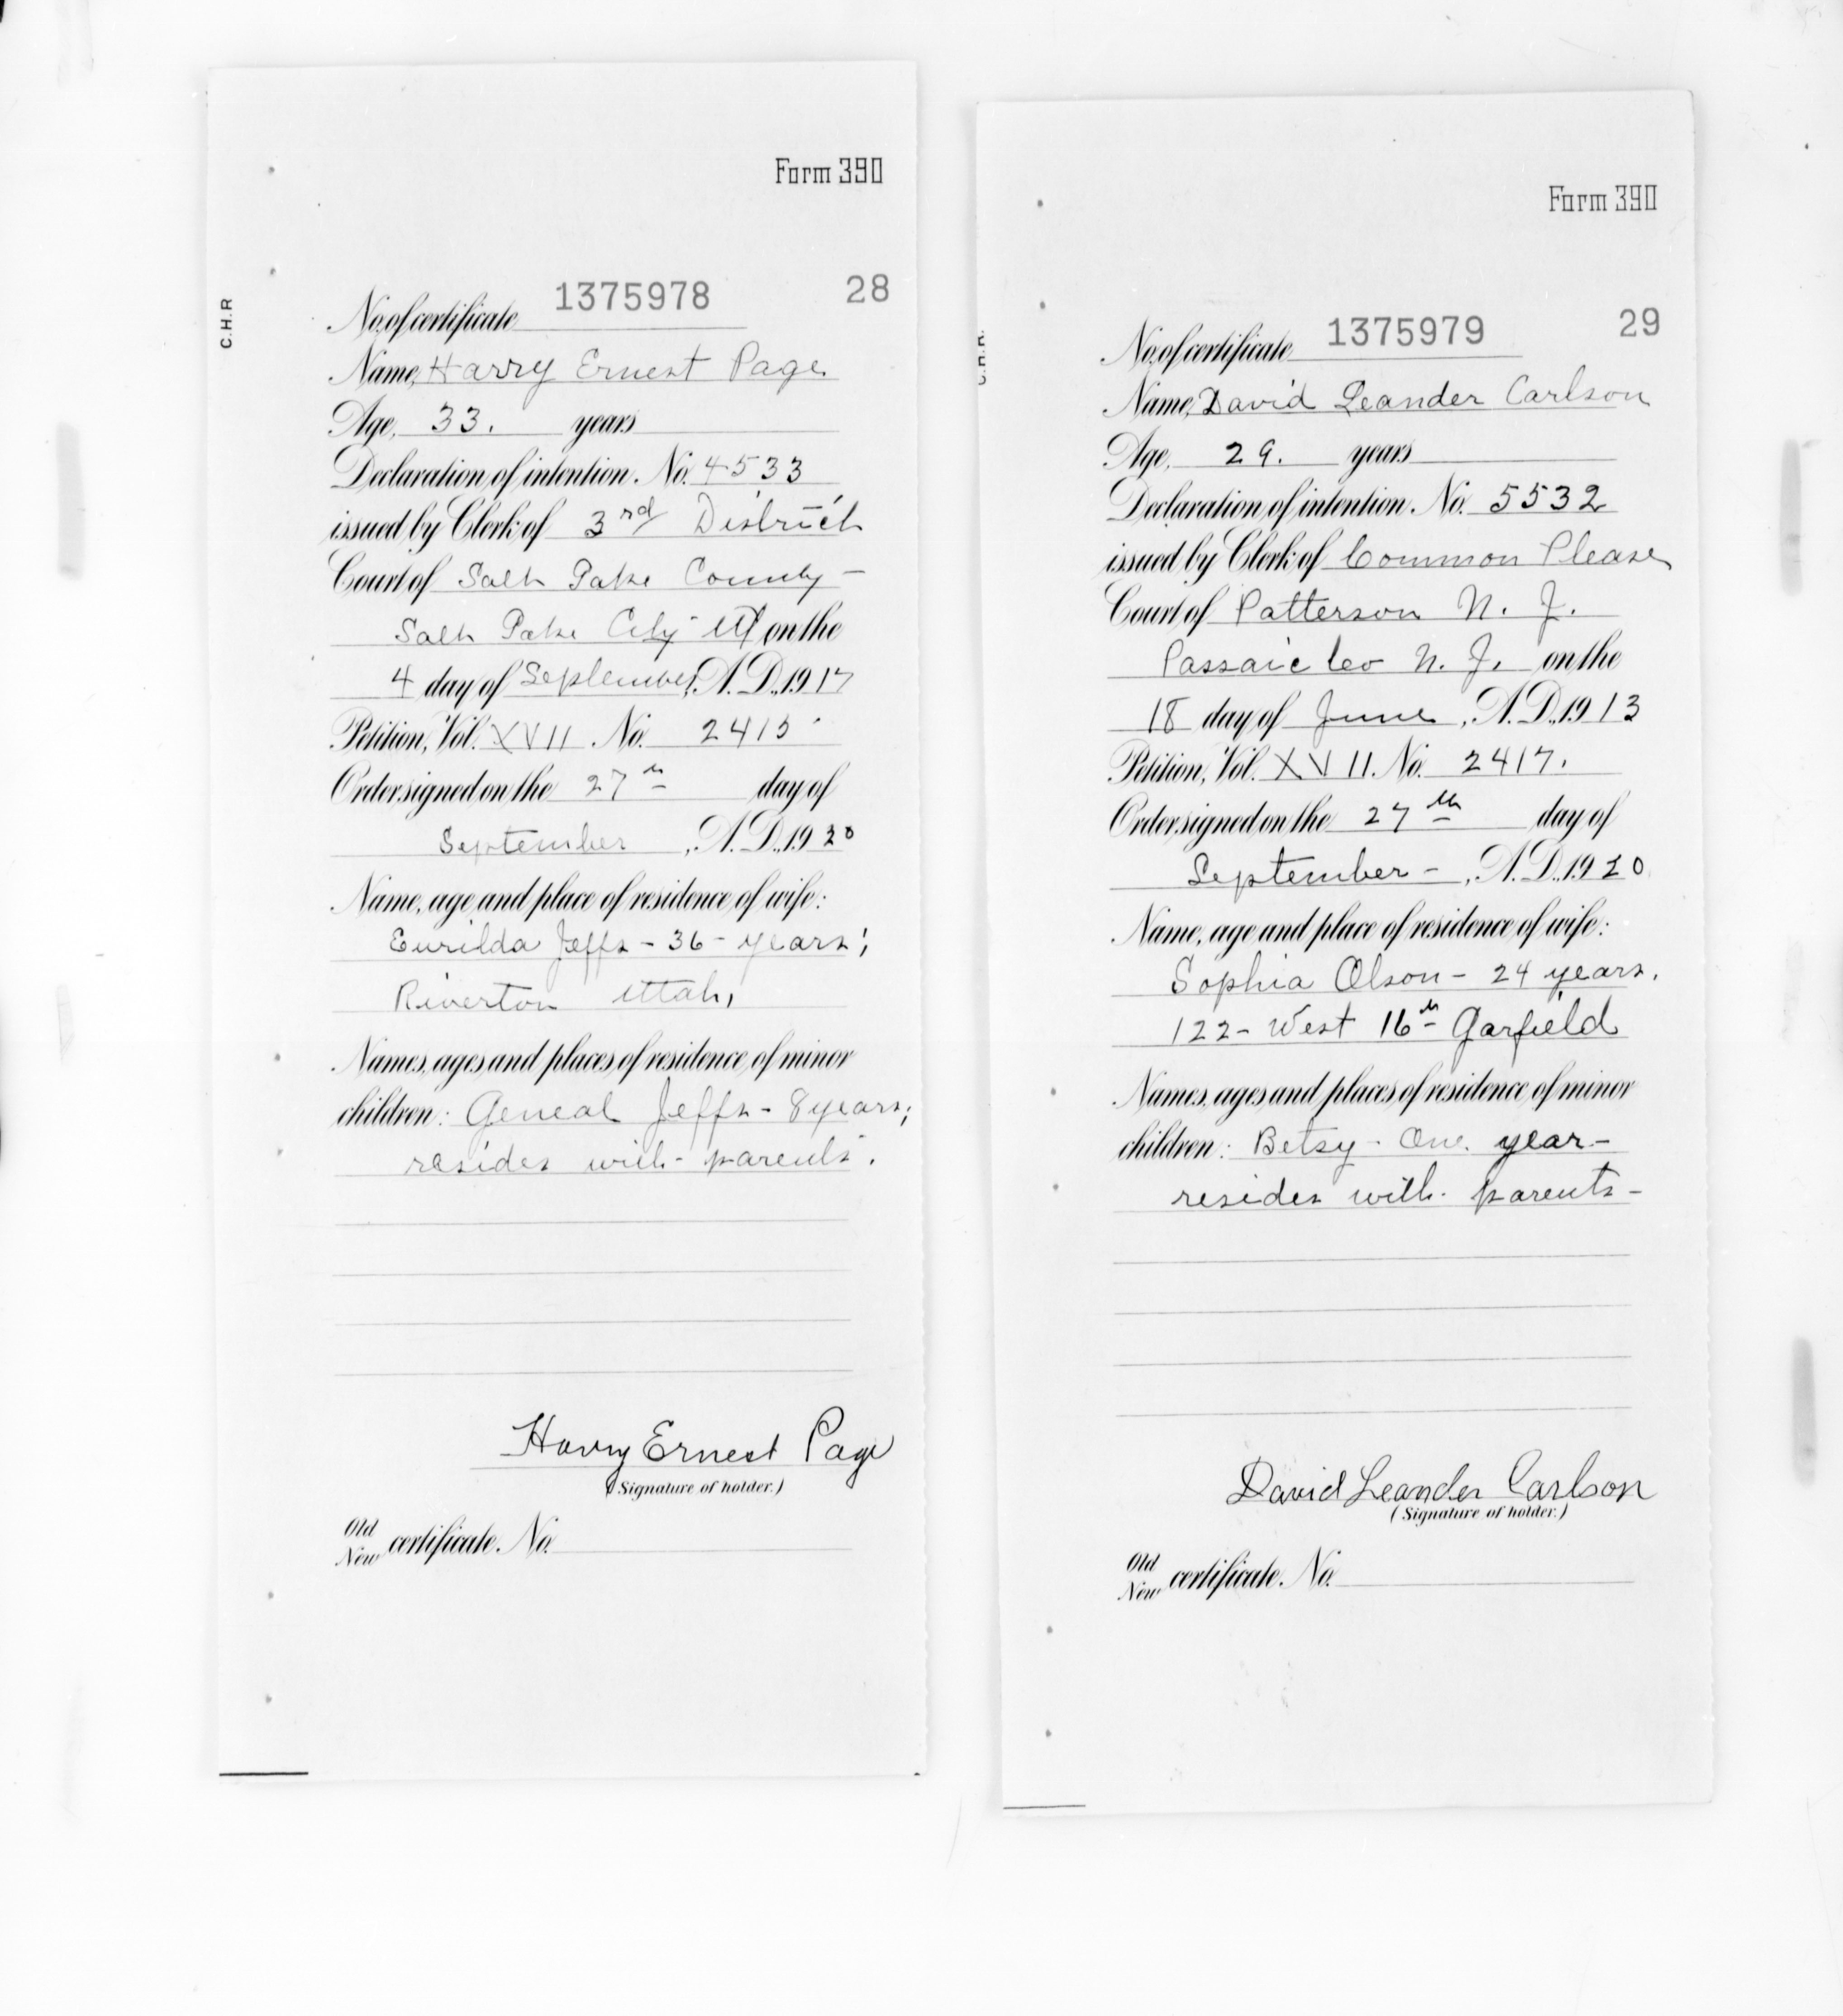 Form 390
C.H.R
28
No. of certificate 1375978
Name, Harry Ernest Page
Age, 33. years
Declaration of intention. No. 4533
issued by Clerk of 3rd District
Court of Salt Lake County -
Salt Lake City Ut on the
4 day of September, A.D., 1917
Petition, Vol. XVII No. 2415
Order signed on the 27th day of
September, A.D., 1920
Name, age and place of residence of wife:
Eurilda Jeffs - 36 - years;
Riverton Utah,
Names, ages and places of residence of minor
children: Geneal Jeffs - 8 years;
resides with - parents.
Harry Ernest Page
(Signature of holder.)
Old
New certificate. No.
Form 390
C.H.R.
29
No. of certificate 1375979
Name, David Leander Carlson
Age, 29. years
Declaration of intention. No. 5532
issued by Clerk of Common Pleas
Court of Patterson N. J.
Passaic Co N. J. on the
18 day of June, A.D., 1913
Petition, Vol. XVII. No. 2417.
Order signed on the 27th day of
September -, A.D., 1920
Name, age and place of residence of wife:
Sophia Olson - 24 years.
122 - West 16th Garfield
Names, ages and places of residence of minor
children: Betsy - One year -
resides with parents -
David Leander Carlson
(Signature of holder.)
Old
New certificate. No.